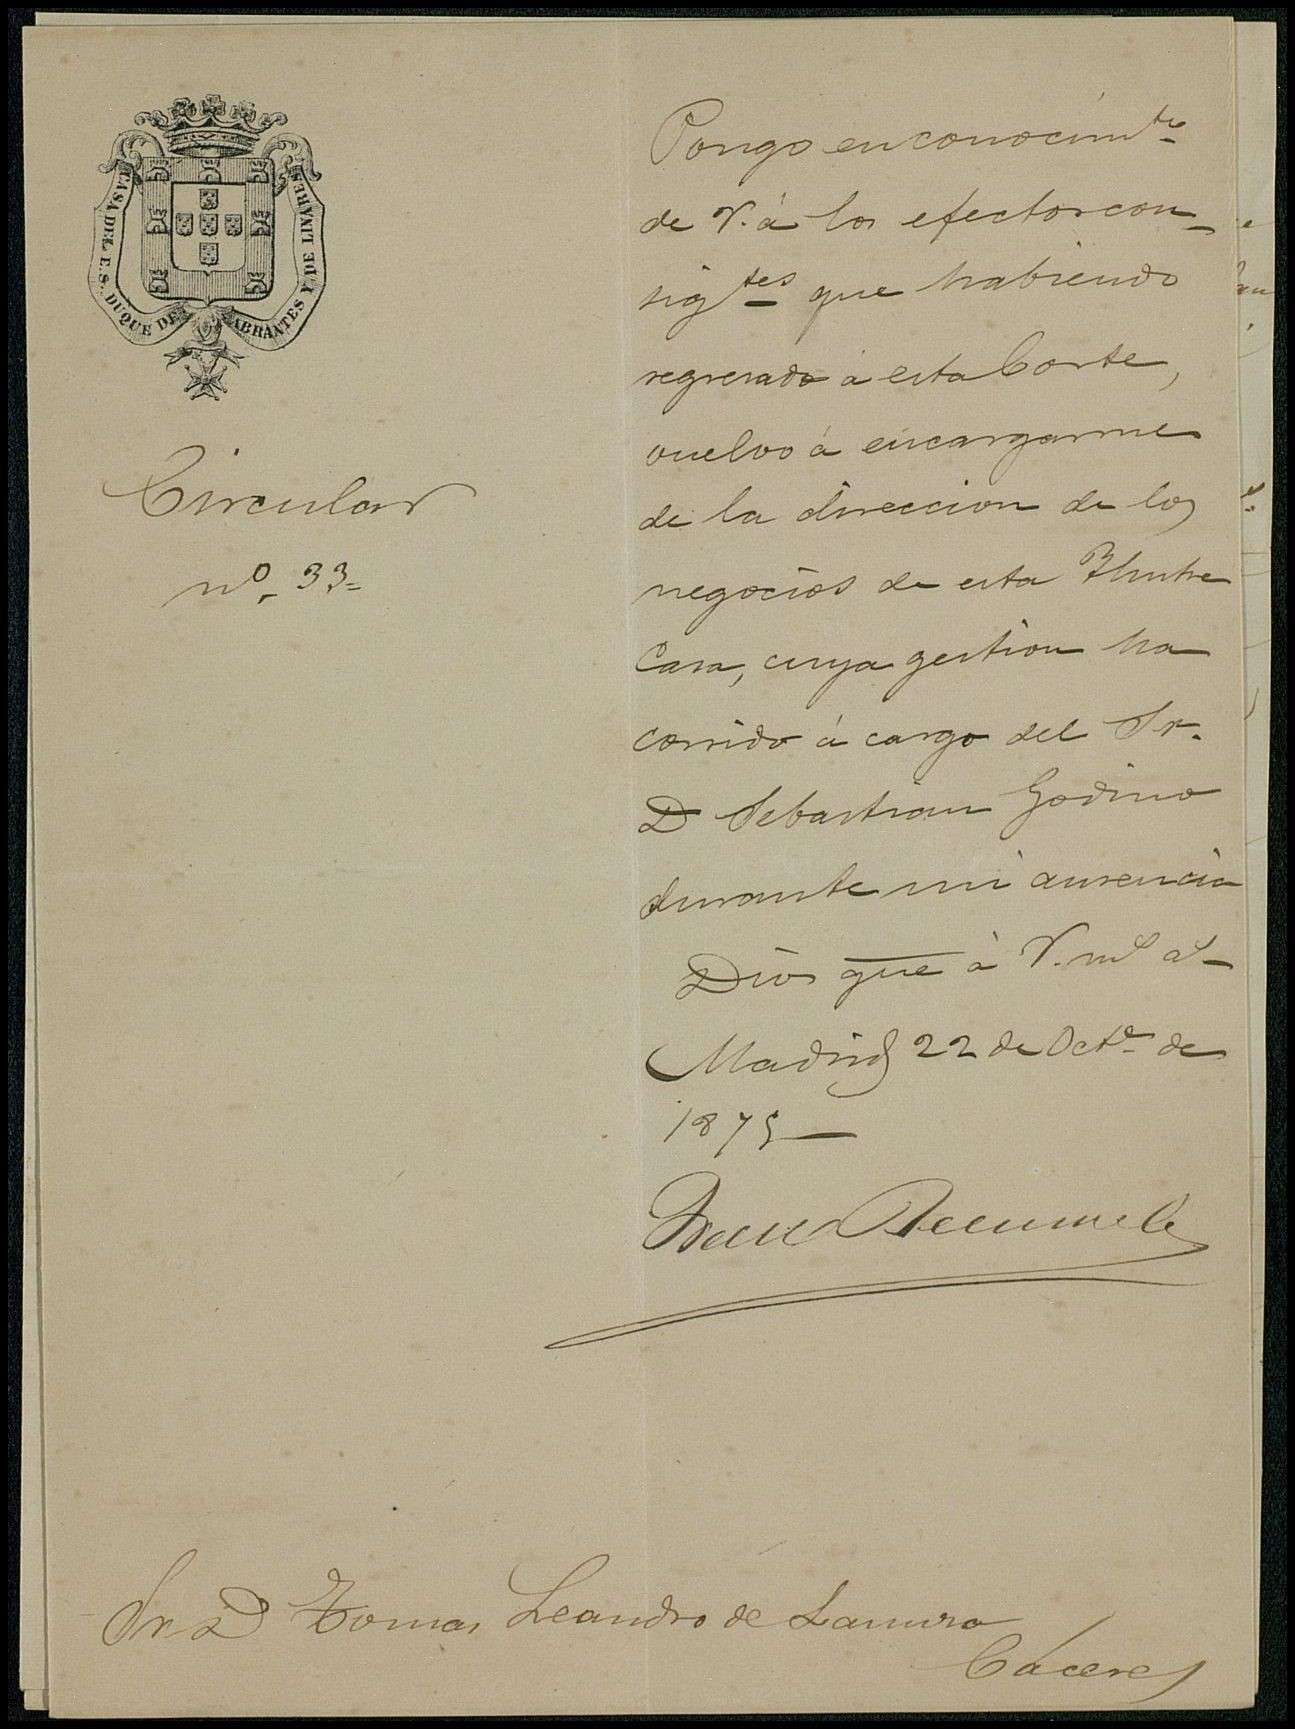 CASA DEL E.S. DUQUE DE ABRANTES Y DE LINARES
Circular
nº. 33=
Pongo en conocimto
de V. á los efectos con-
sigtes que habiendo
regresado á esta Corte,
vuelvo á encargarme
de la direccion de los
negocios de esta Ilustre
Casa, cuya gestion ha
corrido á cargo del Sr.
D Sebastian Godino
durante mi ausencia
Dios gue á V. ms as
Madrid 22 de Octe de
1875
Sr D Tomas Leandro de
Caceres